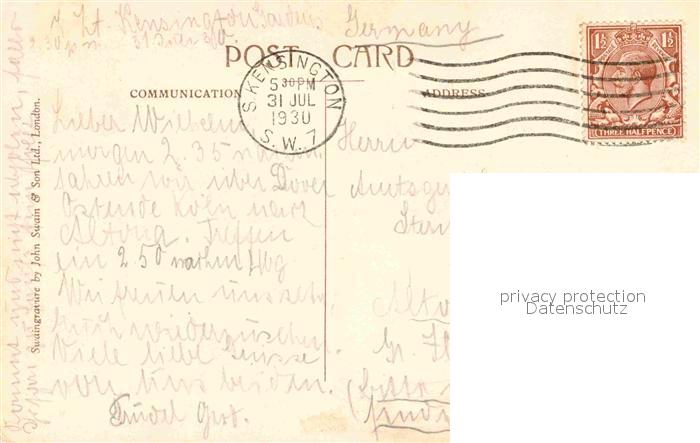 z. Zt. Kensington Gardens
2.30 p.m. 31 Juli 30.
Germany
POST CARD
COMMUNICATION
ADDRESS
S. KENSINGTON
5 30 PM
31 JUL
1930
S.W.7
1½ 1½
THREE HALFPENCE
Lieber Wilhelm
morgen 2.35 nachm.
fahren wir über Dover
Ostende Köln nach
Altona. Treffen
ein 2 50 nachm Hbg
Wir freuen uns sehr
Euch wiederzusehen.
Viele liebe Grüsse
von uns beiden.
Trudel
Herrn
Amtsge
Altona
Gr. Fl
(bitte
Swaingravure by John Swain & Son Ltd., London.
privacy protection
Datenschutz